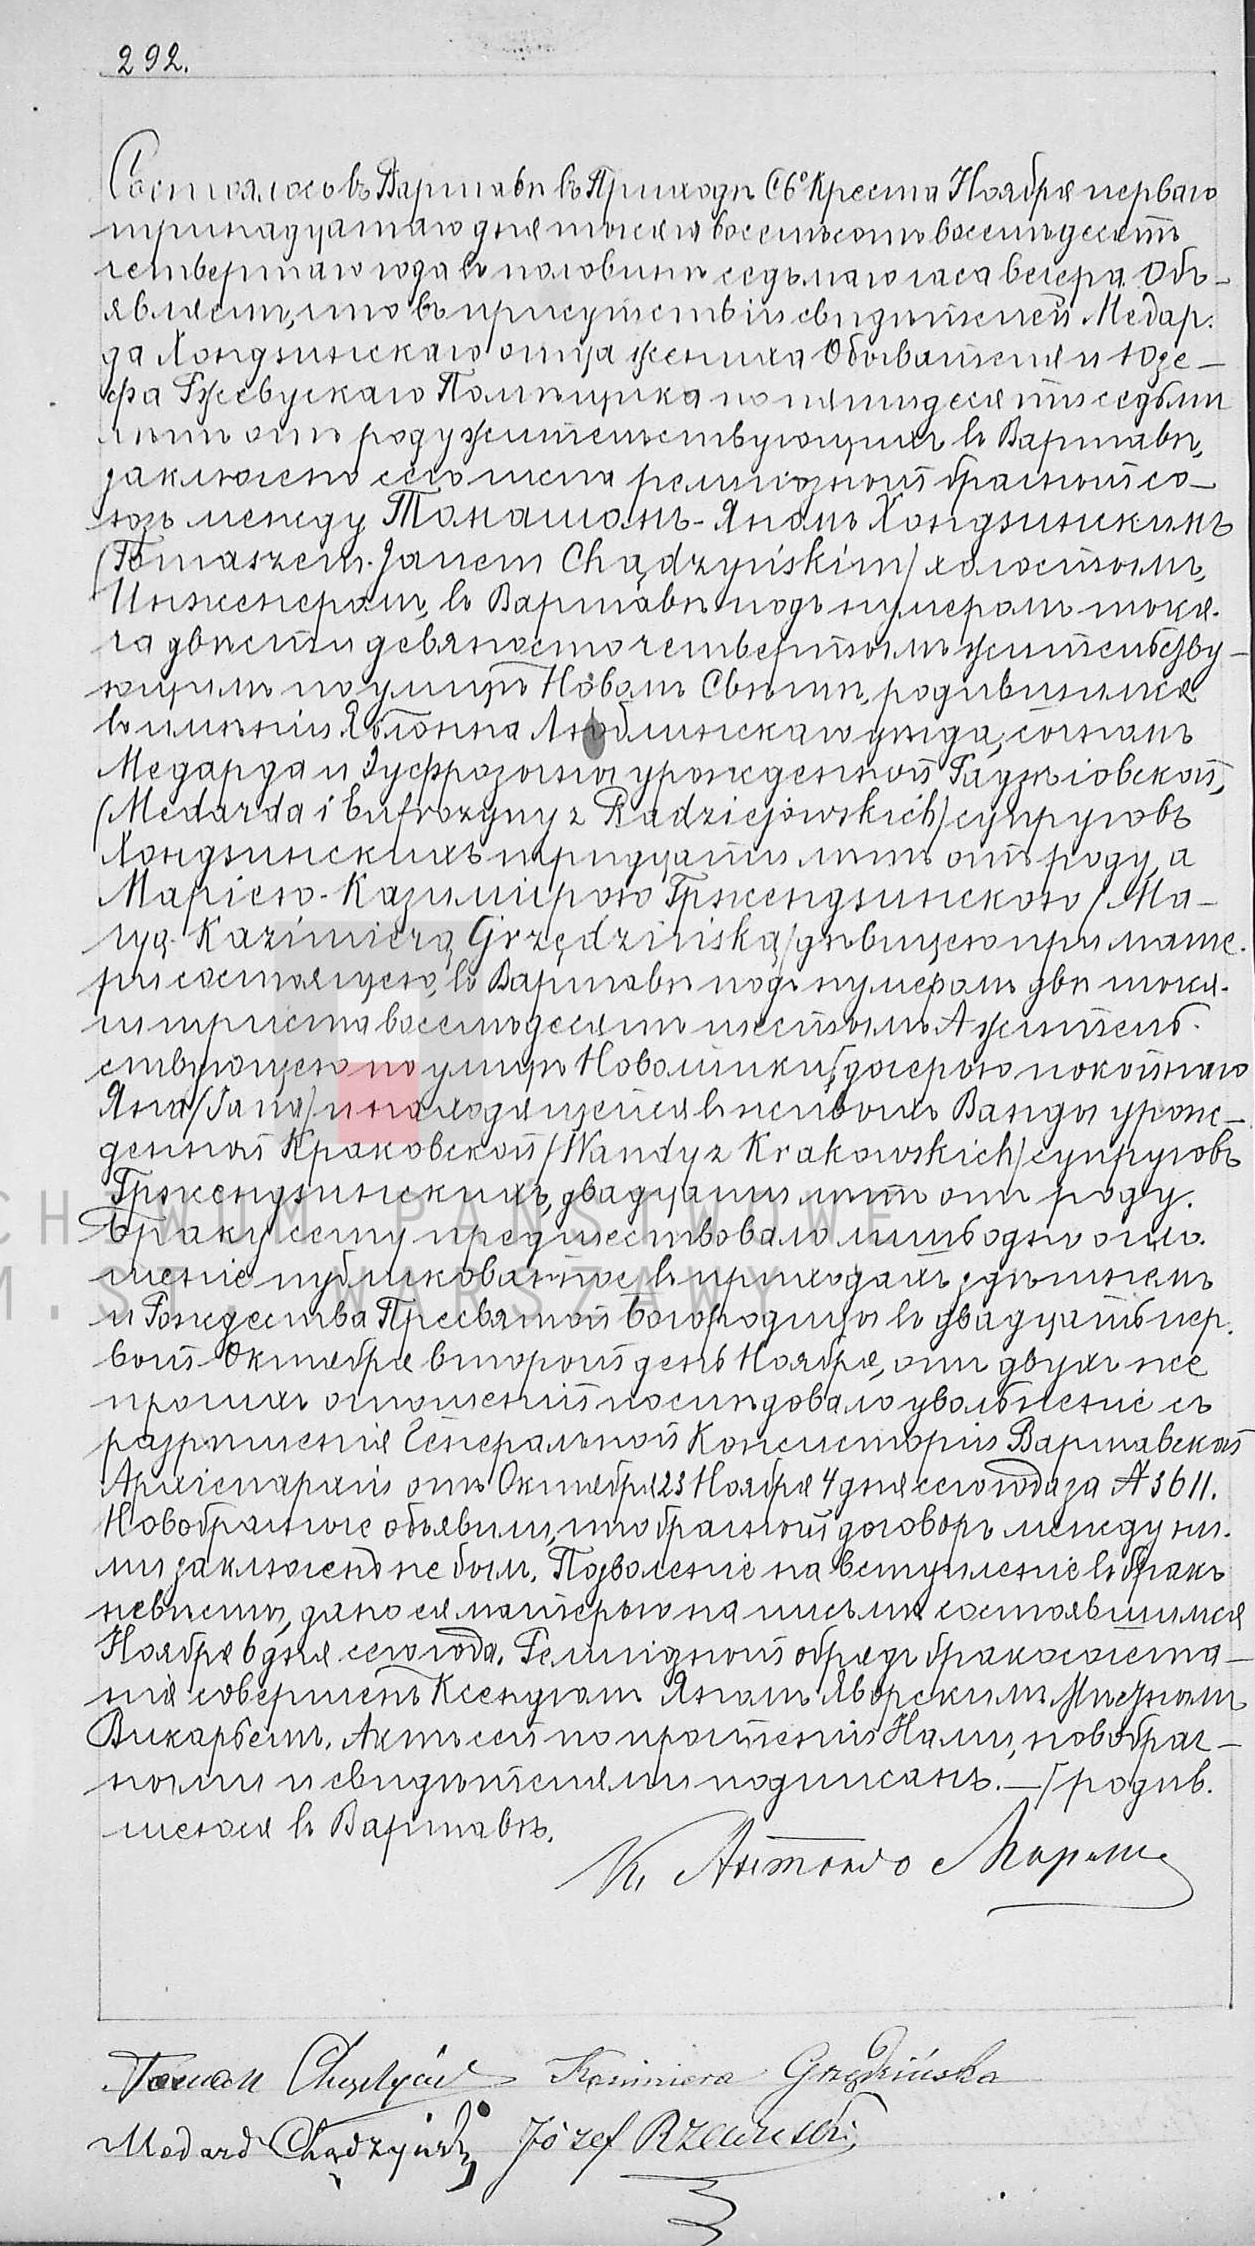 292.
Состоялось въ Варшавѣ въ Приходѣ Св. Креста Ноября перваго
тринадцатаго дня тысяча восемьсотъ восемьдесятъ
четвертаго года въ половинѣ седьмаго часа вечера. Объ-
являемъ, что въ присутствіи свидѣтелей Медар-
да Хондзинскаго отца жениха Обывателя и Юзе-
фа Ржевускаго Помѣщика по пятидесяти седьми
лѣтъ отъ роду жительствующихъ въ Варшавѣ,
заключенъ сего числа религіозный брачный со-
юзъ между Томашомъ-Яномъ Хондзинскимъ
(Tomaszem-Janem Chądzyńskim) холостымъ,
Инженеромъ, въ Варшавѣ подъ нумеромъ тыся-
ча двѣсти девяносто четвертымъ жительству-
ющимъ по улицѣ Новомъ Свѣтѣ, родившимся
въ имѣніи Яблонна Люблинскаго уѣзда, сыномъ
Медарда и Эуфрозыны урожденной Радзѣіовской,
(Medarda i Eufrozyny z Radziejowskich) супруговъ
Хондзинскихъ тридцати лѣтъ отъ роду, а
Маріею-Казимірою Гржендзинскою (Ma-
ryą-Kazimierą Grzędzińską) дѣвицею при мате-
ри состоящею, въ Варшавѣ подъ нумеромъ двѣ тыся-
чи триста восемьдесятъ шестымъ А житель-
ствующею по улицѣ Новолипки, дочерью покойнаго
Яна (Jana) и находящейся въ живыхъ Ванды урож-
денной Краковской (Wandy z Krakowskich) супруговъ
Гржендзинскихъ, двадцати лѣтъ отъ роду.
Браку сему предшествовало лишь одно огла-
шеніе публикованное въ приходахъ здѣшнемъ
и Рождества Пресвятой Богородицы въ двадцать пер-
вый Октября второй день Ноября, отъ двухъ же
прочихъ оглошеній послѣдовало увольненіе съ
разрѣшенія Генеральной Консисторіи Варшавской
Архіепархіи отъ Октября 23 Ноября 4 дня сего года за А 3611.
Новобрачные объявили, что брачный договоръ между ни-
ми заключенъ не былъ. Позволеніе на вступленіе въ бракъ
невѣсты, дано ея матерью на письмѣ состоявшимся
Ноября 6 дня сего года. Религіозный обрядъ бракосочета-
нія совершенъ Ксендзомъ Яномъ Яворскимъ Мѣстнымъ
Викарьемъ. Актъ сей по прочтеніи Нами, новобрач-
ными и свидѣтелями подписанъ. — родив-
шеюся въ Варшавѣ.
Кс Антоній
Tomasz Chądzyński Kazimiera Grzędzińska
Medard Chądzyński Józef Rzewuski
ARCHIWUM PAŃSTWOWE
M.ST. WARSZAWY